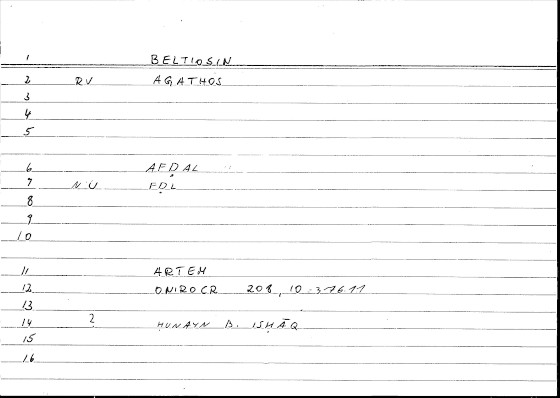 1 BELTIOSIN
2 RV AGATHOS
3
4
5
6 AFḌAL
7 NU FḌL
8
9
10
11 ARTEM
12 ONIROCR 208, 10 = 376.11
13
14 2 ḤUNAYN B. ISḤĀQ
15
16